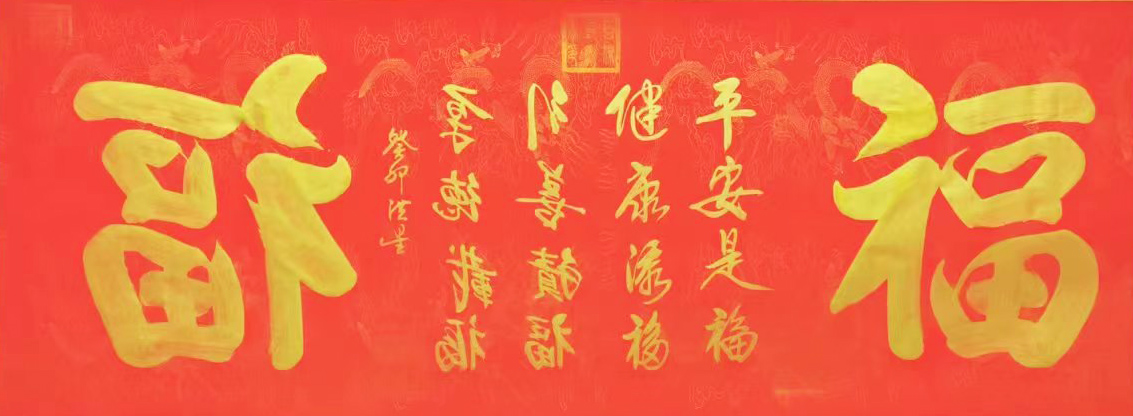 福
平安是福
健康添福
行善積福
厚德載福
癸卯
福